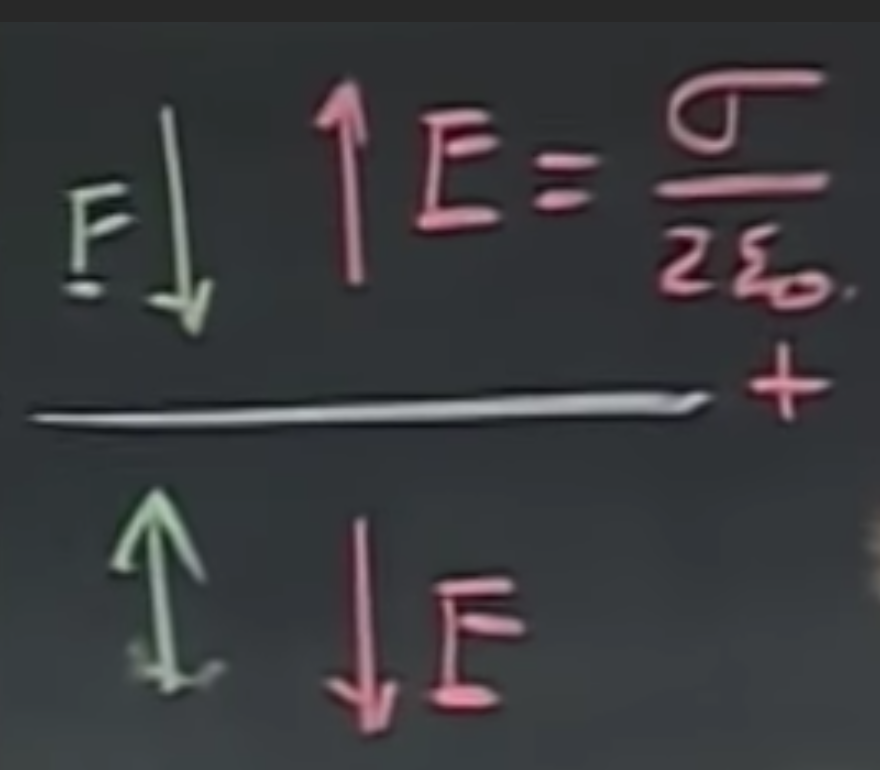 F ↓ ↑ E = σ / 2ε₀
+
↑ ↓ E